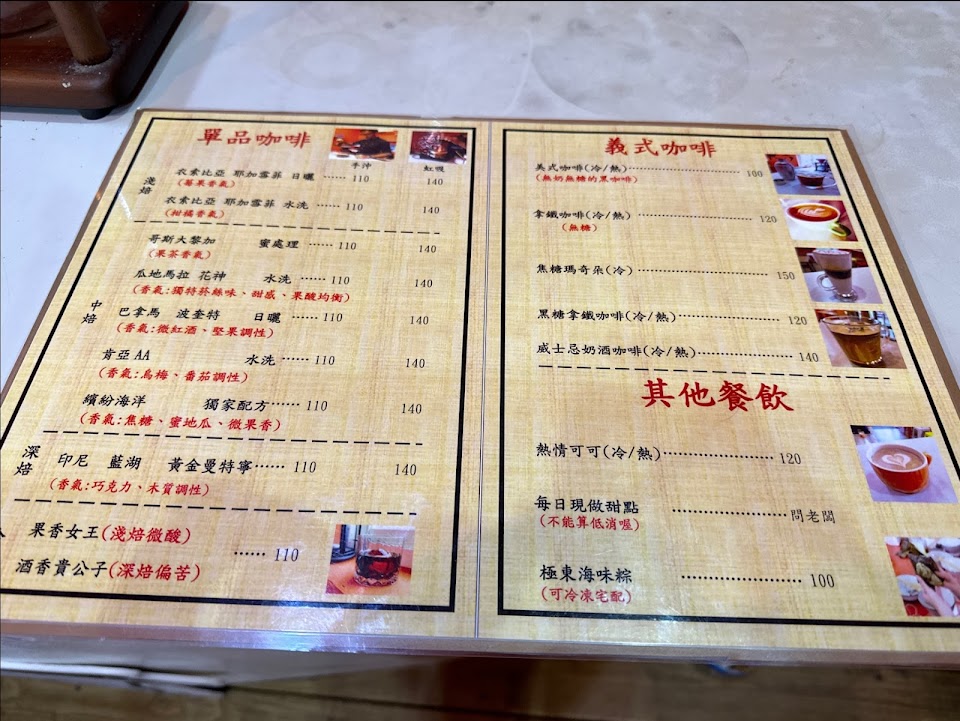 單品咖啡
手沖 虹吸
淺焙
衣索比亞 耶加雪菲 日曬 ...... 110 140
(莓果香氣)
衣索比亞 耶加雪菲 水洗 ...... 110 140
(柑橘香氣)
中焙
哥斯大黎加 蜜處理 ...... 110 140
(果茶香氣)
瓜地馬拉 花神 水洗 ...... 110 140
(香氣:獨特菸絲味、甜感、果酸均衡)
巴拿馬 波奎特 日曬 ...... 110 140
(香氣:微紅酒、堅果調性)
肯亞AA 水洗 ...... 110 140
(香氣:烏梅、番茄調性)
繽紛海洋 獨家配方 ...... 110 140
(香氣:焦糖、蜜地瓜、微果香)
深焙
印尼 藍湖 黃金曼特寧 ...... 110 140
(香氣:巧克力、木質調性)
果香女王(淺焙微酸)
...... 110
酒香貴公子(深焙偏苦)
義式咖啡
美式咖啡(冷/熱) ...... 100
(無奶無糖的黑咖啡)
拿鐵咖啡(冷/熱) ...... 120
(無糖)
焦糖瑪奇朵(冷) ...... 150
黑糖拿鐵咖啡(冷/熱) ...... 120
威士忌奶酒咖啡(冷/熱) ...... 140
其他餐飲
熱情可可(冷/熱) ...... 120
每日現做甜點 ...... 問老闆
(不能算低消喔)
極東海味粽 ...... 100
(可冷凍宅配)